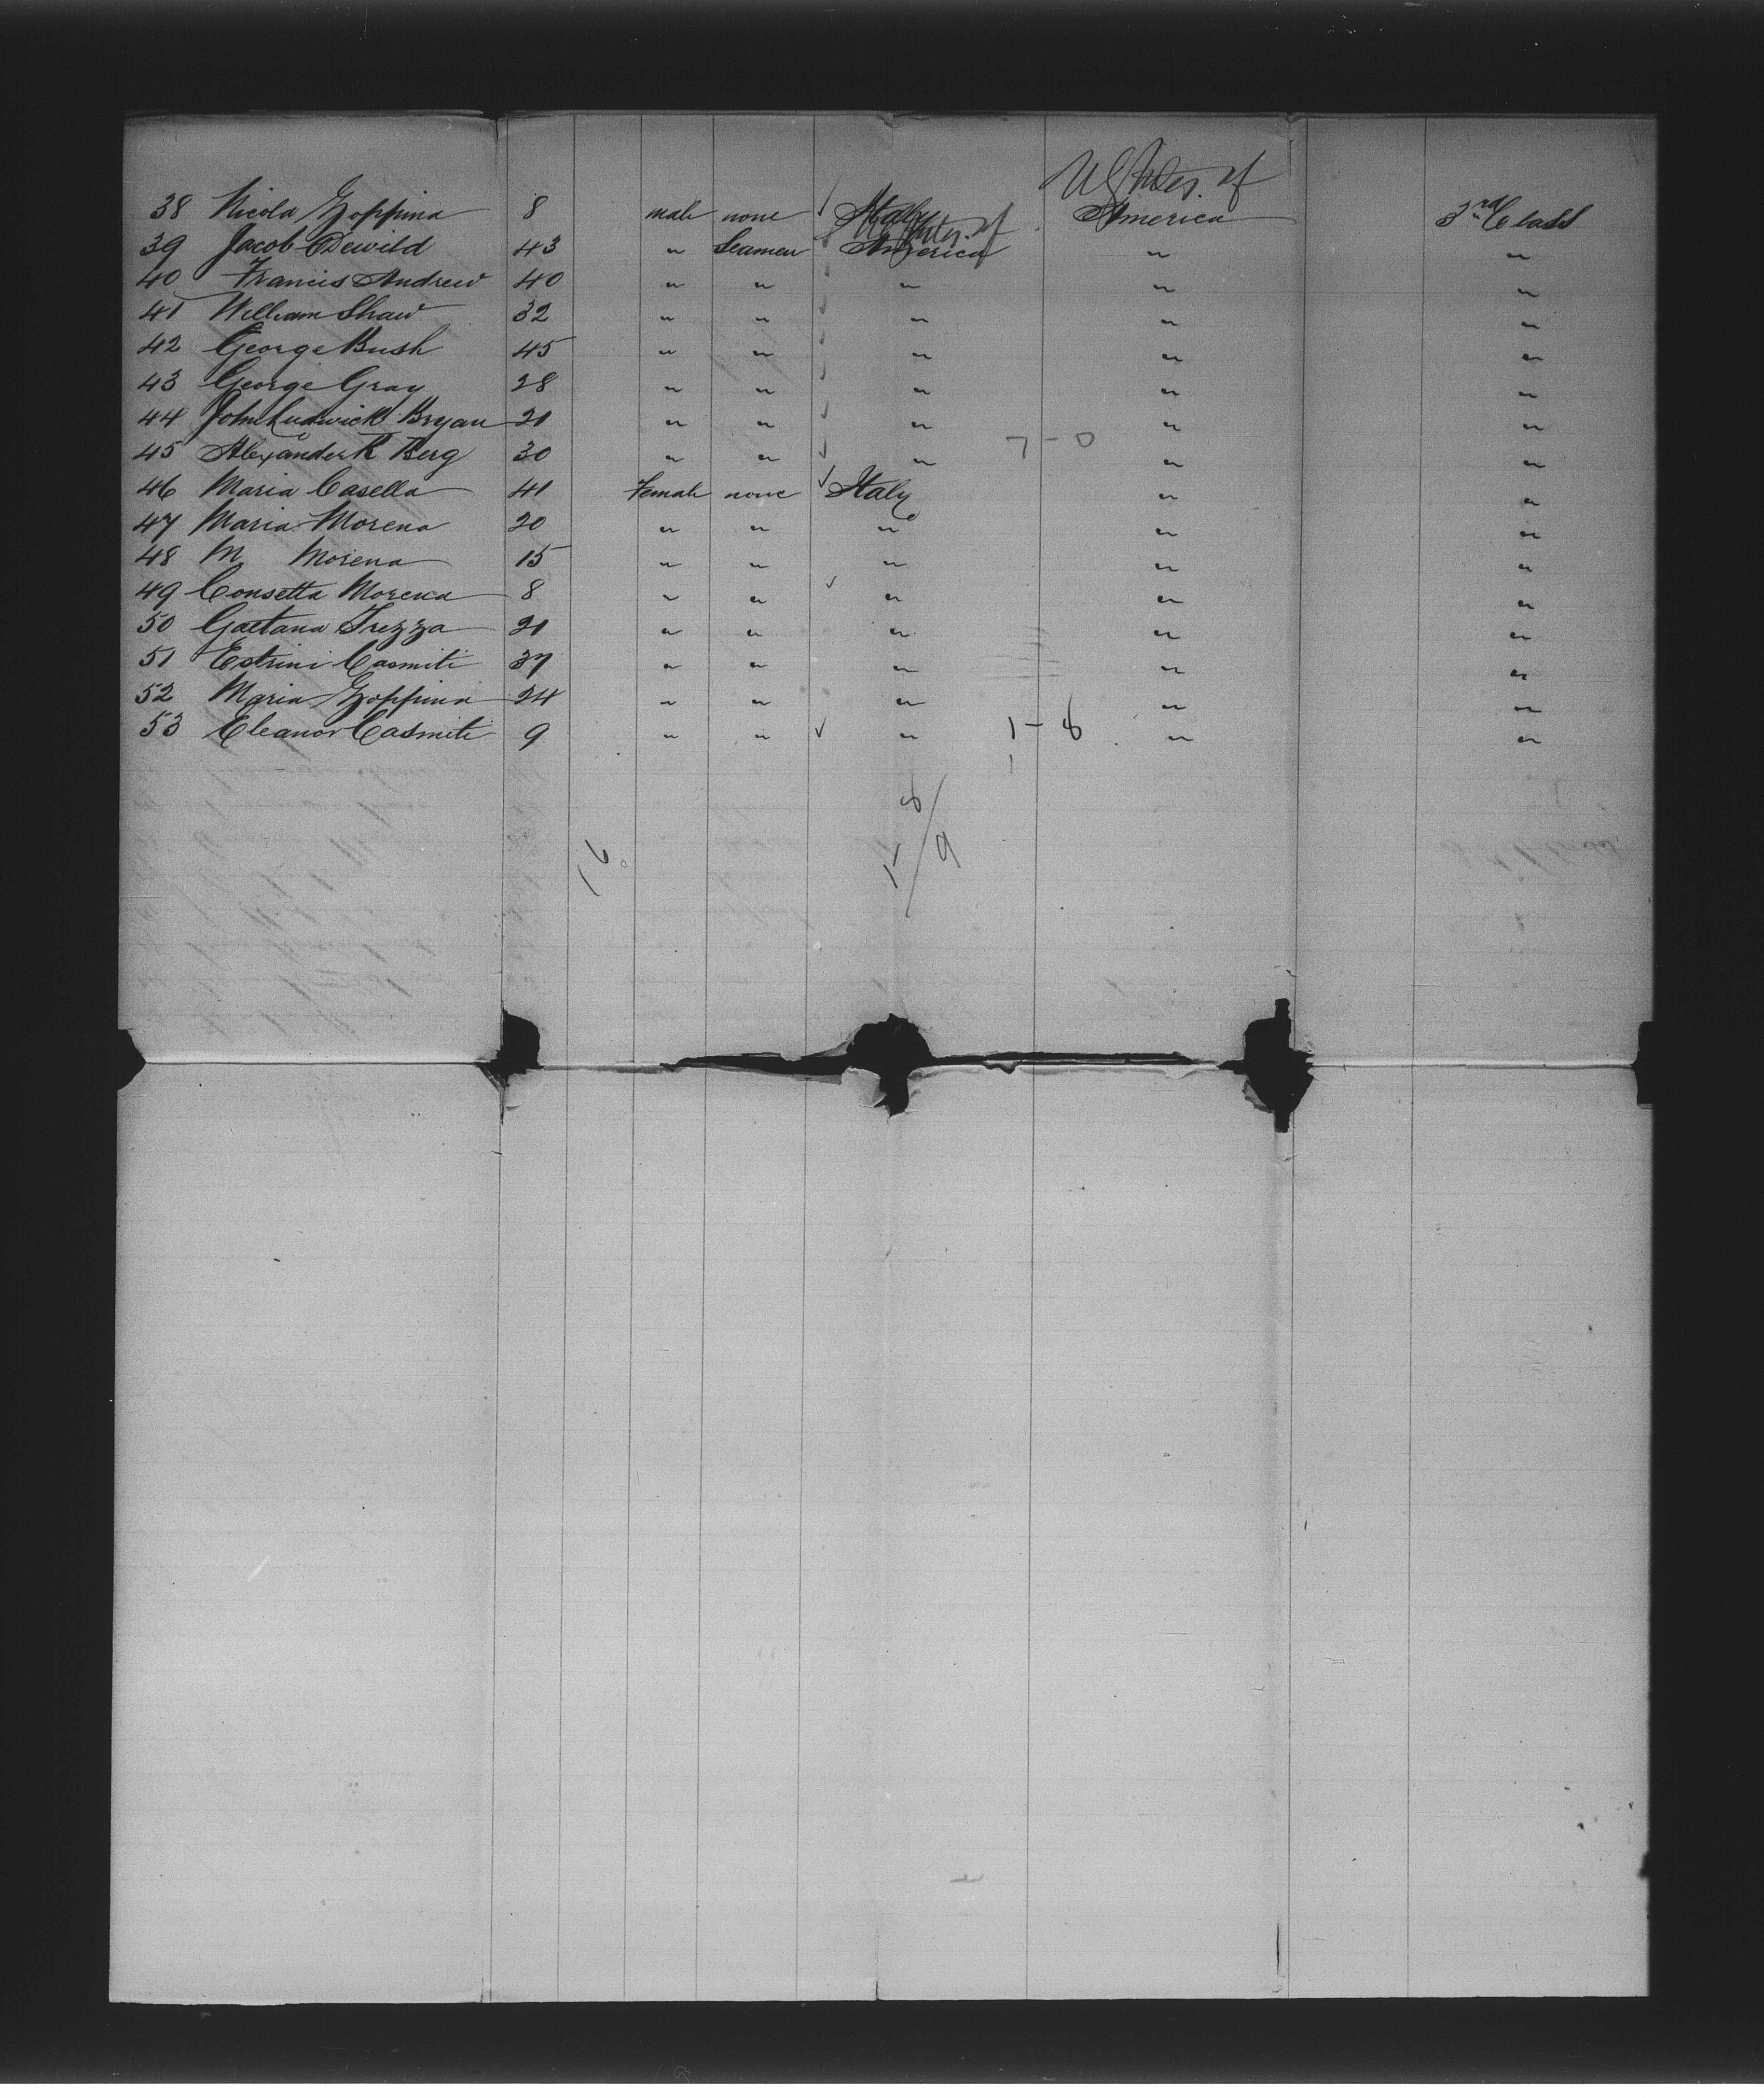 U States of
38 Nicola Zoppina 8 male none ✓ Italy America 3rd Class
U States of
39 Jacob Dewild 43 " Seaman America " "
40 Francis Andrew 40 " " " " "
41 William Shaw 32 " " " " "
42 George Bush 45 " " " " "
43 George Gray 28 " " " " "
44 John Ludwick Bryan 21 " " ✓ " " "
45 Alexander R Berg 30 " " ✓ " 7-0 " "
46 Maria Casella 41 Female none ✓ Italy " "
47 Maria Morena 20 " " " " "
48 M Morena 15 " " " " "
49 Consetta Morena 8 " " ✓ " " "
50 Gaetana Trezza 21 " " " " "
51 Estrini Casmiti 37 " " " " "
52 Maria Zoppina 24 " " " " "
53 Eleanor Casmiti 9 " " ✓ " 1-8 " "
1
8
16 15/9